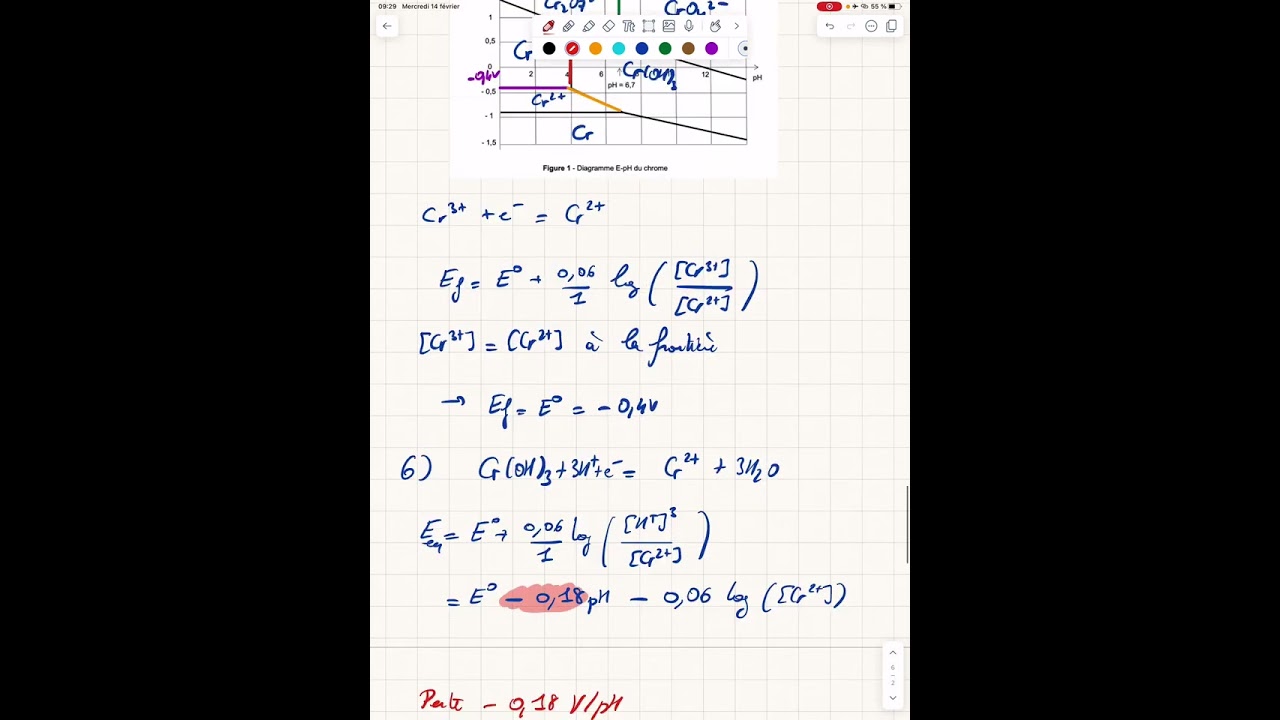 09:29 Mercredi 14 février 55 %
Cr₂O₇²⁻ CrO₄²⁻
1
0,5
Cr
0
2 4 6 12 pH
-0,4V
Cr(OH)₃
pH = 6,7
- 0,5
Cr²⁺
- 1
Cr
- 1,5
Figure 1 - Diagramme E-pH du chrome
Cr³⁺ + e⁻ = Cr²⁺
Ef = E⁰ + 0,06/1 log ([Cr³⁺]/[Cr²⁺])
[Cr³⁺] = [Cr²⁺] à la frontière
→ Ef = E⁰ = - 0,4V
6) Cr(OH)₃ + 3H⁺ + e⁻ = Cr²⁺ + 3H₂O
Eeq = E⁰ + 0,06/1 log ([H⁺]³/[Cr²⁺])
= E⁰ - 0,18 pH - 0,06 log ([Cr²⁺])
6
2
Pente - 0,18 V/pH